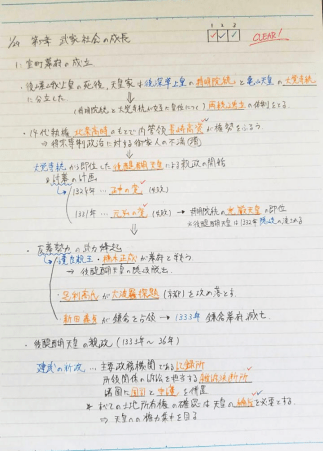 1/24 第5章 武家社会の成長
1 2 3
CLEAR!
1. 室町幕府の成立
・後嵯峨上皇の死後、天皇家は後深草上皇の持明院統と亀山天皇の大覚寺統
に分立した
(持明院統と大覚寺統が交互に皇位につく) 両統迭立の体制をとる
・14代執権 北条高時のもとで内管領 長崎高資が権勢をふるう
⇒ 得宗専制政治に対する御家人の不満(増)
大覚寺統から即位した後醍醐天皇による親政の開始
討幕の計画
1324年… 正中の変 (失敗)
1331年… 元弘の変 (失敗) → 持明院統の光厳天皇の即位
※後醍醐天皇は1332年 隠岐に流される
・反幕勢力の武力蜂起
・護良親王・楠木正成が幕府と戦う
→ 後醍醐天皇の隠岐脱出
・足利高氏が六波羅探題(京都)を攻め落とす
・新田義貞が鎌倉を占領 → 1333年 鎌倉幕府滅亡
・後醍醐天皇の親政 (1333年〜36年)
建武の新政 … 主要政務機関である記録所
所領関係の訴訟を担当する雑訴決断所
諸国に国司と守護を併置
* すべての土地所有権の確認は天皇の綸旨を必要とする
⇒ 天皇への権力集中を図る